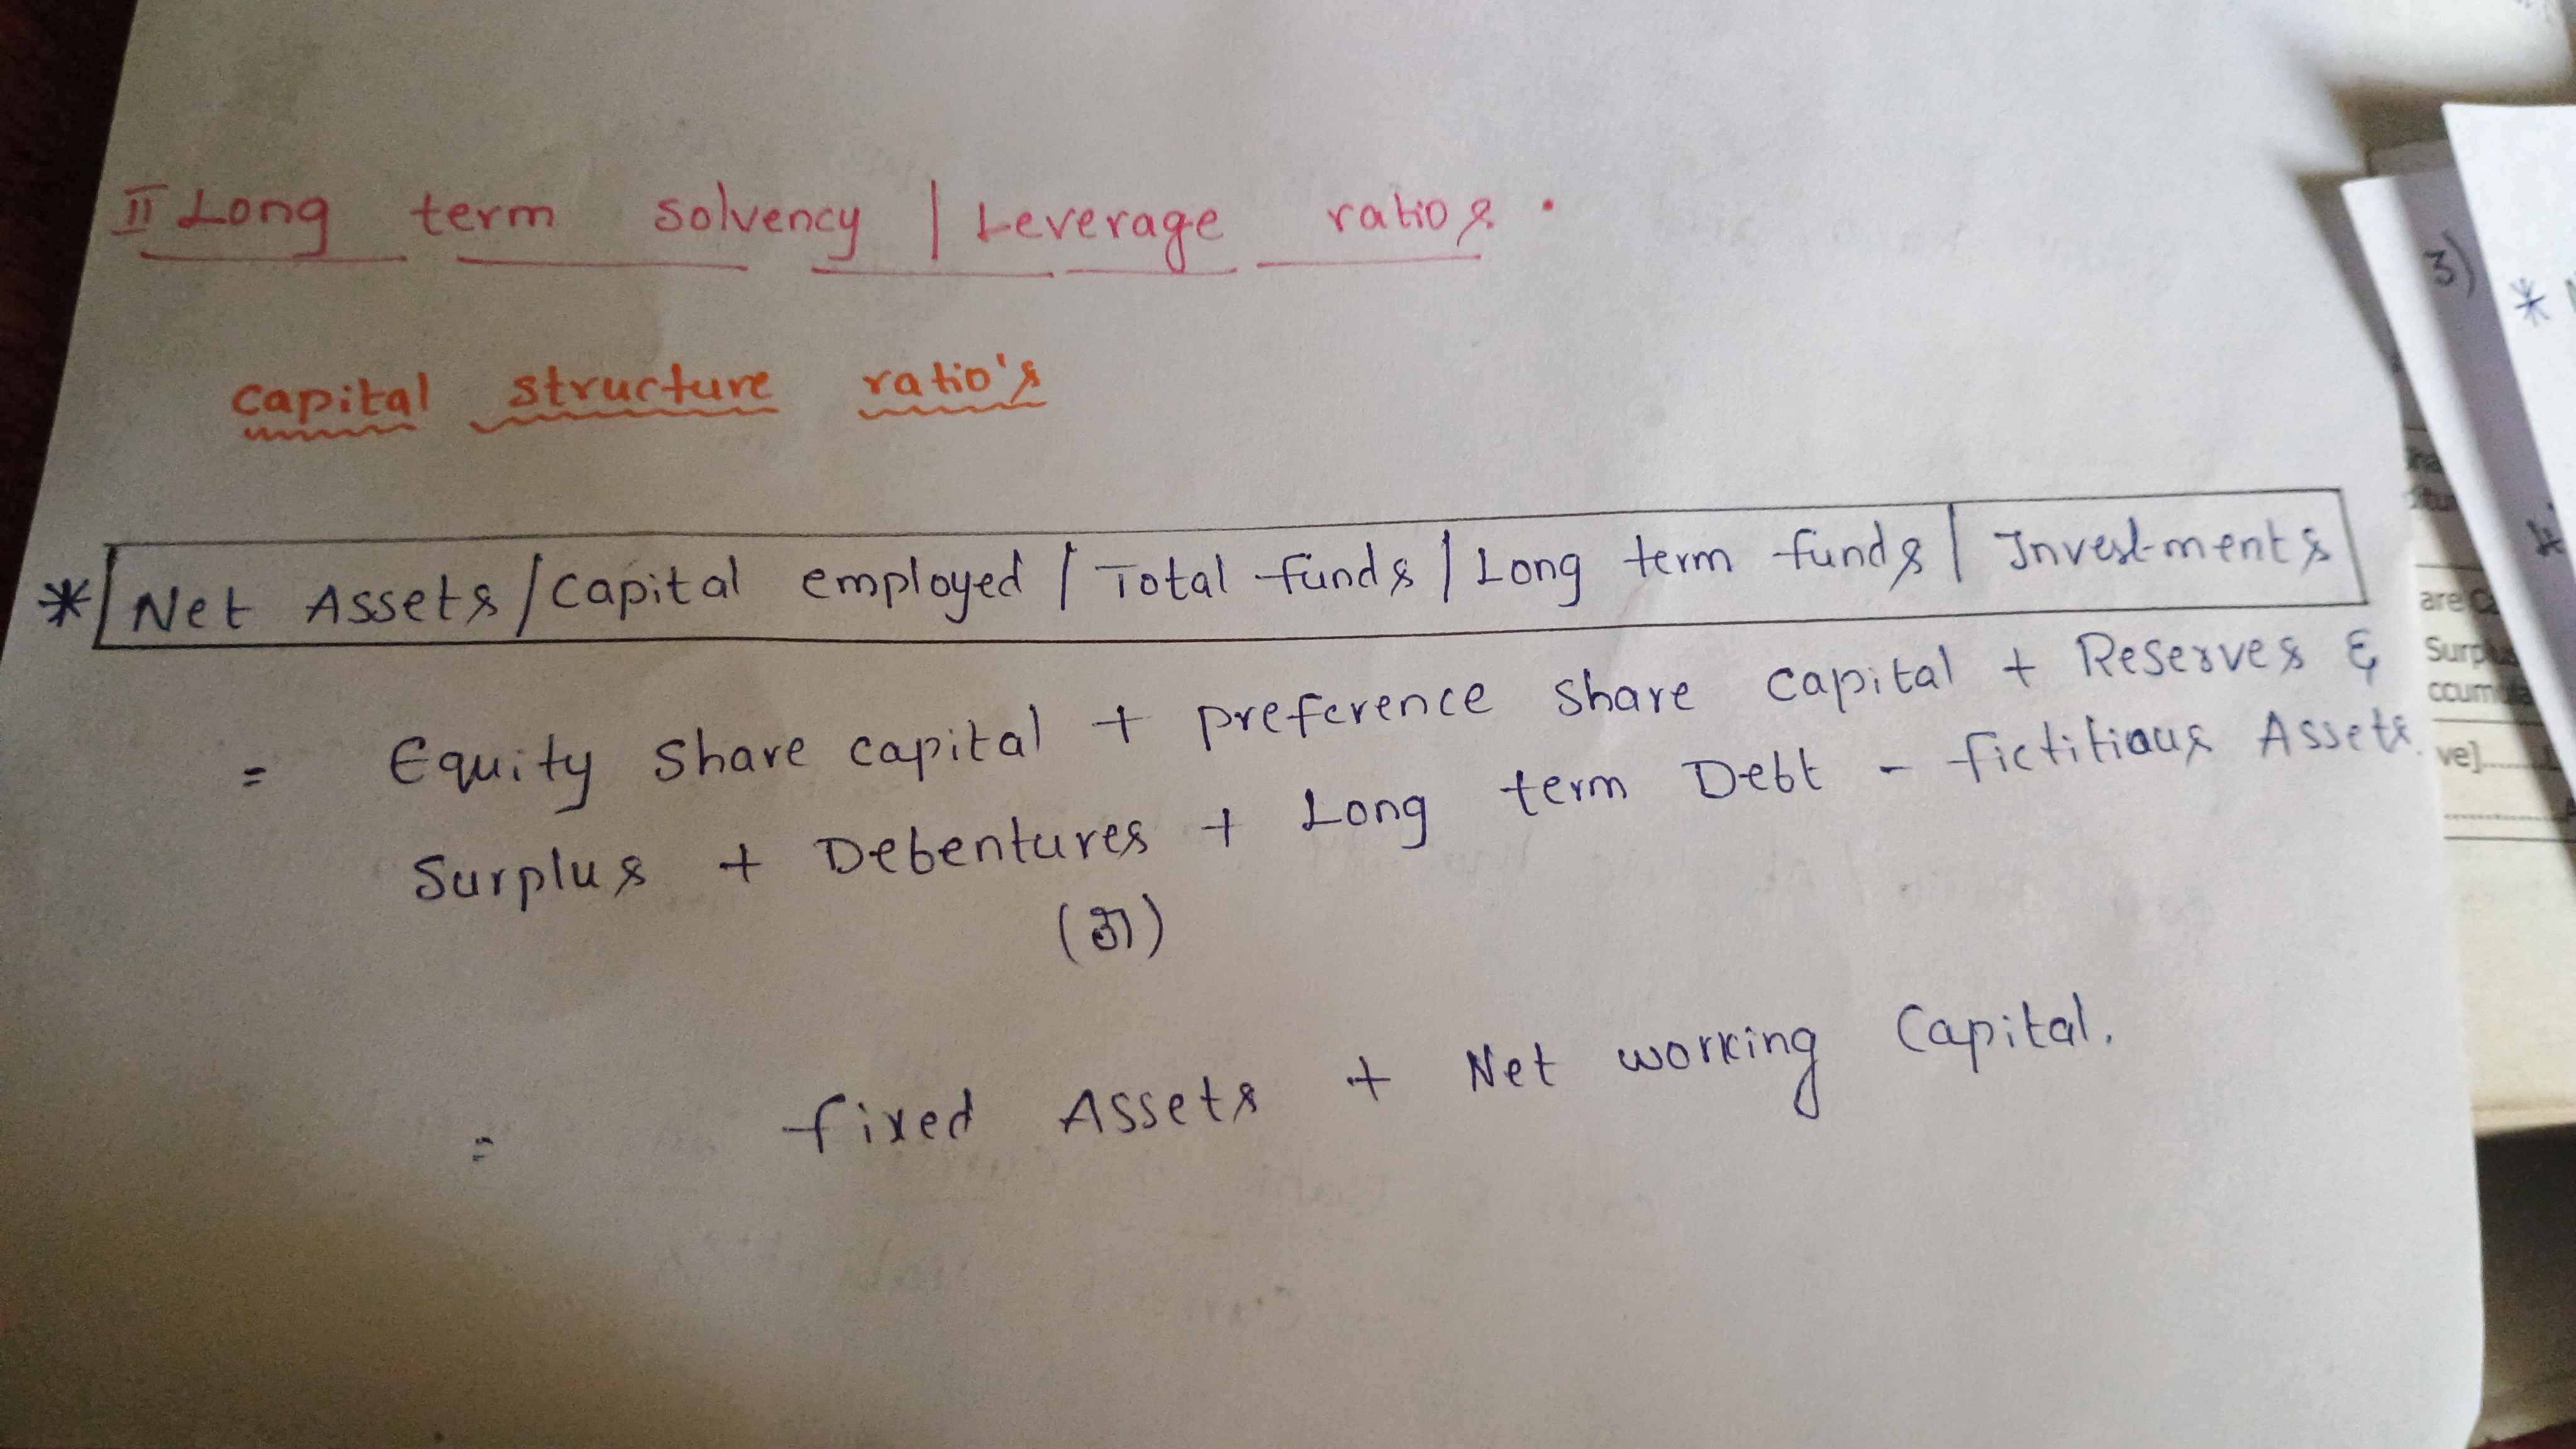 II Long term solvency / Leverage ratios.
capital structure ratio's
* Net Assets / Capital employed / Total funds / Long term funds / Investments
= Equity share capital + preference share capital + Reserves &
Surplus + Debentures + Long term Debt - fictitious Assets.
(or)
= fixed Assets + Net working Capital.
3)
*
are
Surplus
ve]